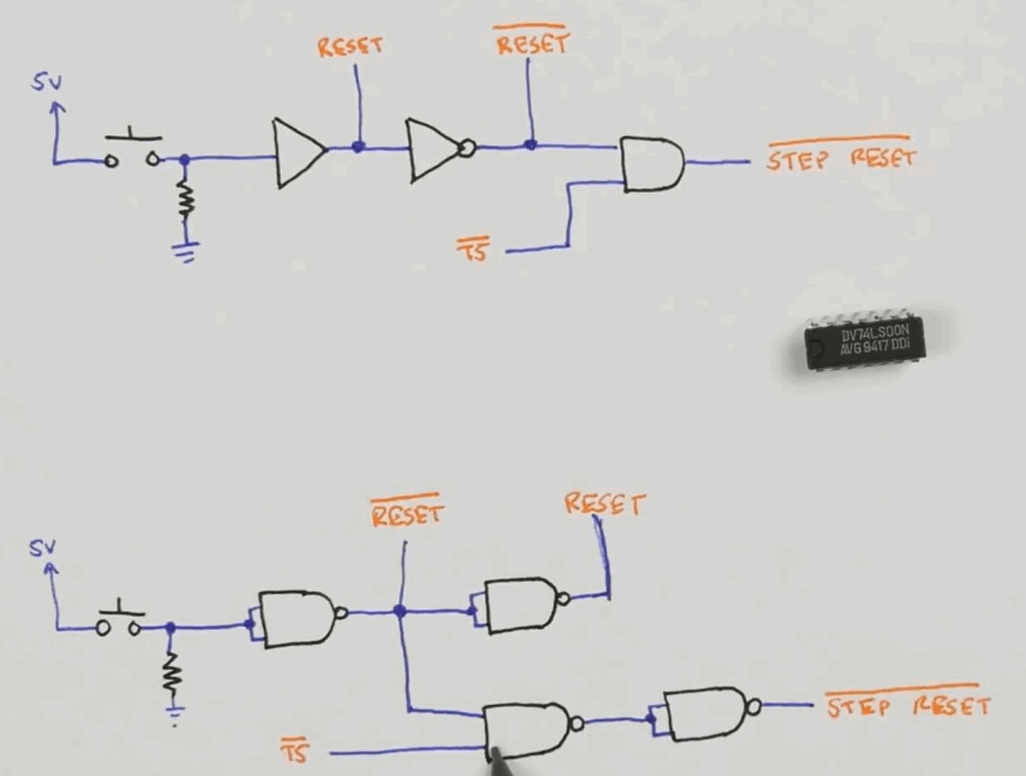 RESET
R̅E̅S̅E̅T̅
5V
S̅T̅E̅P̅ R̅E̅S̅E̅T̅
T̅5̅
DV74LS00N
AVG 9417 DDi
R̅E̅S̅E̅T̅
RESET
5V
S̅T̅E̅P̅ R̅E̅S̅E̅T̅
T̅5̅